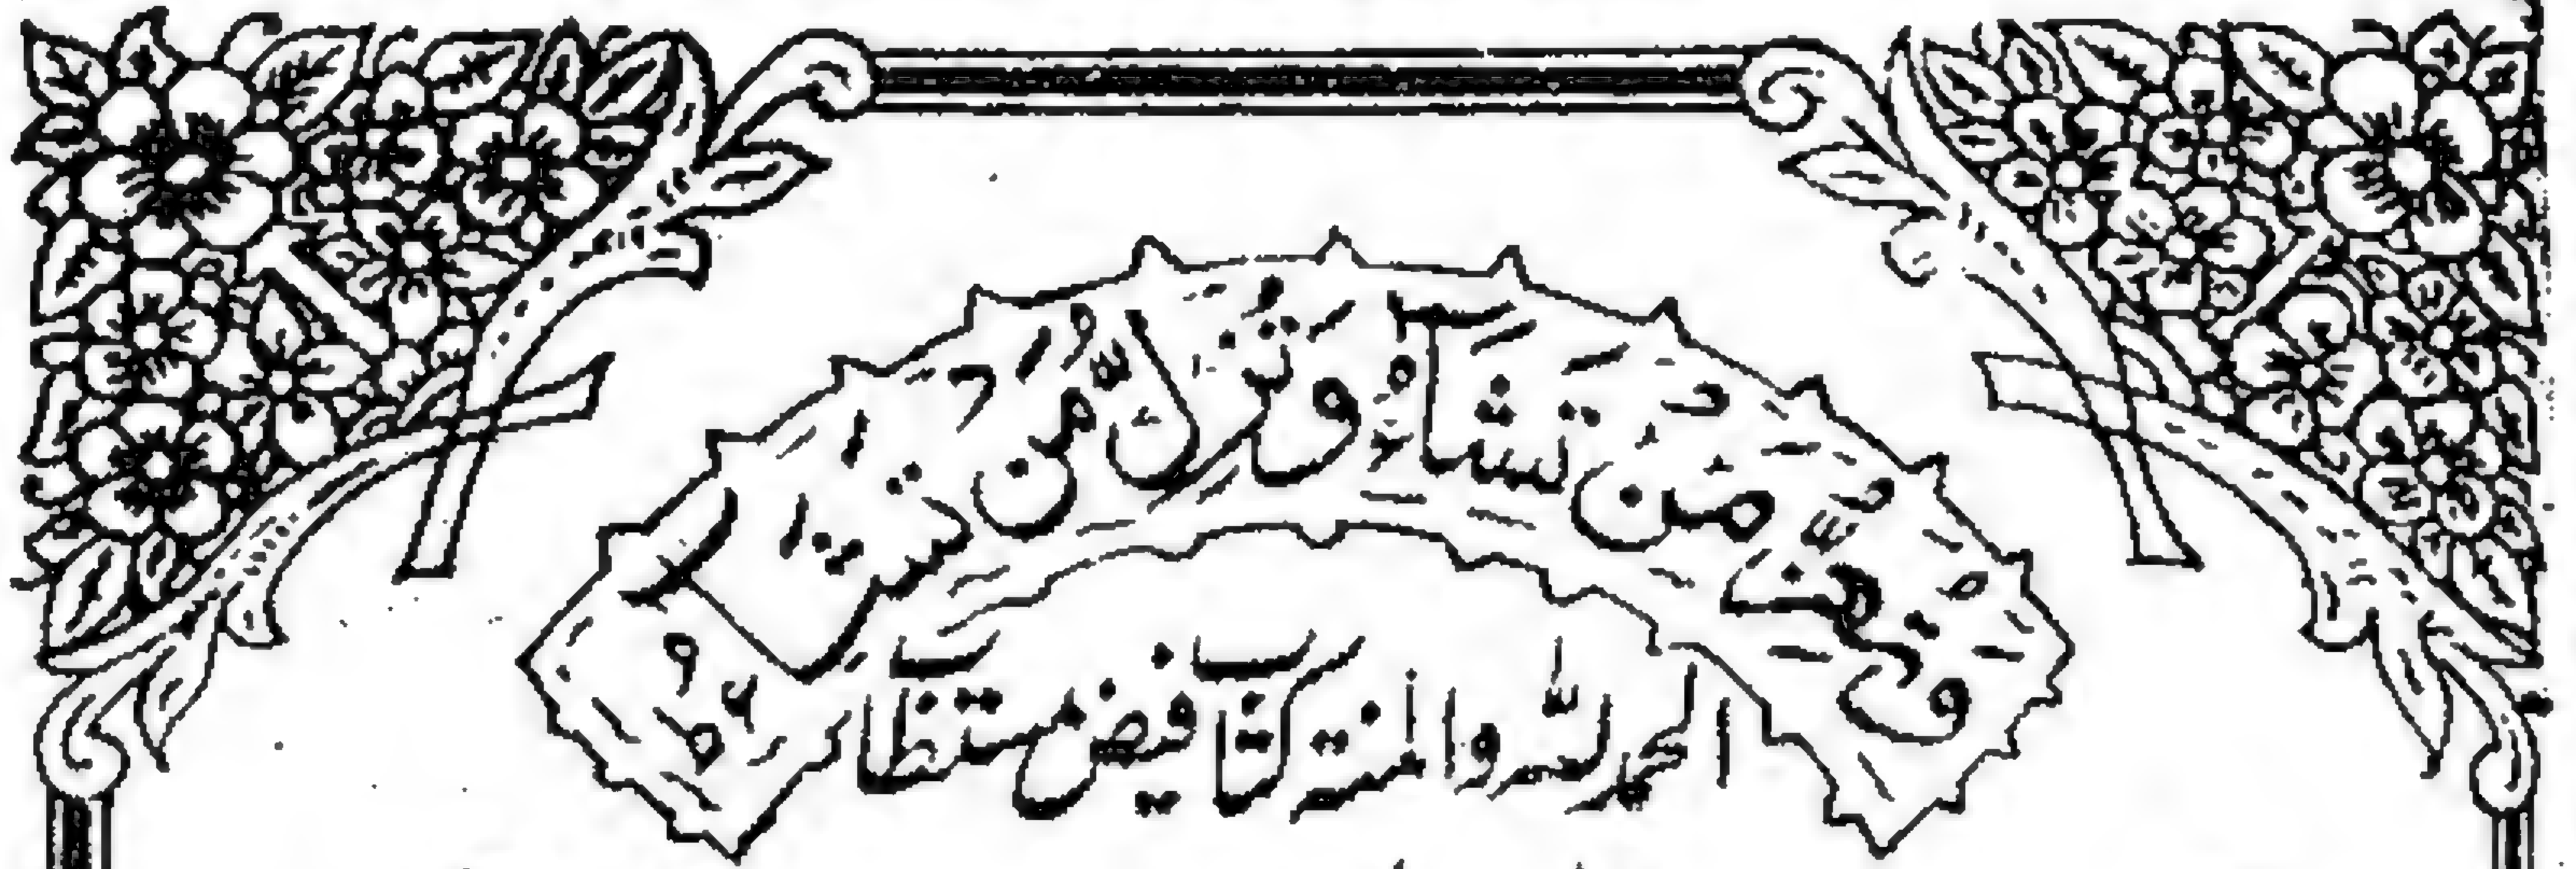 وَتُعِزُّ مَنْ تَشَآءُ وَتُذِلُّ مَنْ تَشَآءُ
الحمد للہ والمنۃ کہ کتاب فیض مستطاب